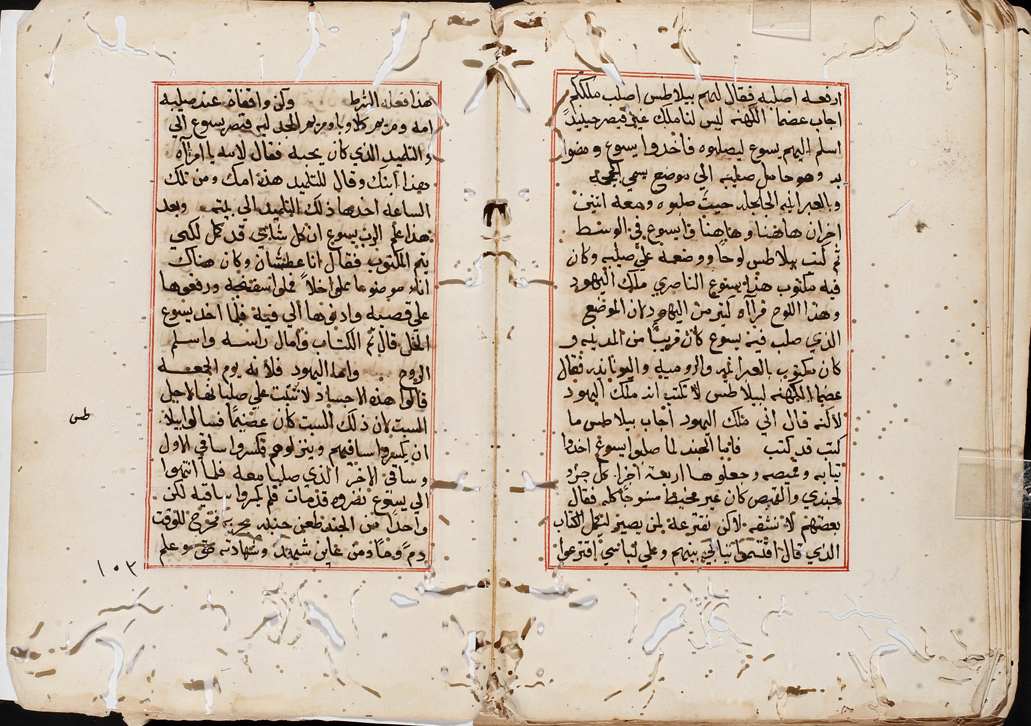 ارفعه اصلبه فقال لهم بيلاطس اصلب ملككم
اجاب عضما الكهنه ليس لنا ملك غير قيصر حينيذ
اسلم اليهم يسوع ليصلبوه فأخدوا يسوع ومضوا
به وهو حامل صليبه الى موضع يسمي
وبالعبرانيه الجلجله حيت صلبوه ومعه اتنين
اخران هاهنا وهاهنا فايسوع في الوسط
تم كتب بيلاطس لوحا ووضعه علي صليبه وكان
فيه مكتوب هذا يسوع الناصري ملك اليهود
وهذا اللوح قرآه كتير من اليهود لان الموضع
الدي صلب فيه يسوع كان قريبا من المدينه و
كان مكتوب بالعبرانيه والروميه واليونانيه فقال
عضما الكهنه لبيلاطس لا تكتب انه ملك اليهود
لاكنه قال اني ملك اليهود اجاب بيلاطس ما
كتب قد كتب فاما الجند لما صلبوا يسوع اخدوا
تيابه وقميصه وجعلوها اربعة اجزا كل جزو
لجندي والقميص كان غير مخيط منسوجا كله فقال
بعضهم لا نشقه لاكن نقترع عليه لمن يصير ليكمل الكتاب
الدي قال اقتسموا تيابي بينهم وعلي لباسي اقترعوا
هذا فعله الشرط وكن واقفاة عند صليبه
امه ومريم ومريم المجدليه فنضر يسوع الي
والتلميد الذي كان يحبه فقال لامه يا امرآه
هذا ابنك وقال للتلميد هذه امك ومن تلك
الساعه اخدها ذلك التلميد الى بيته وبعد
هذا علم الرب يسوع ان كل شاي قد كمل لكي
يتم المكتوب فقال انا عطشان وكان هناك
اناء موضوعا مملوا خلا فملوا اسفنجه ورفعوها
علي قصبه وادنوها الي فيه فلما اخد يسوع
الخل قال تم الكتاب وامال راسه واسلم
الروح واما اليهود فلانه يوم الجمعه
قالوا هذه الاجساد لا تثبت علي صلبانها لاجل
السبت لان ذلك السبت كان عضيما فسالوا بيلا
طس
ان يكسروا ساقيهم وينزلوهم فكسروا ساقي الاول
وساقي الاخر الذي صلبا معه فلما انتهوا
الي يسوع نضروه قد مات فلم يكسروا ساقيه لكن
واحدا من الجند طعن جنبه بحربه فخرج للوقت
دم وما ومن عاين شهد وشهادته حق وعلم
١٠٣